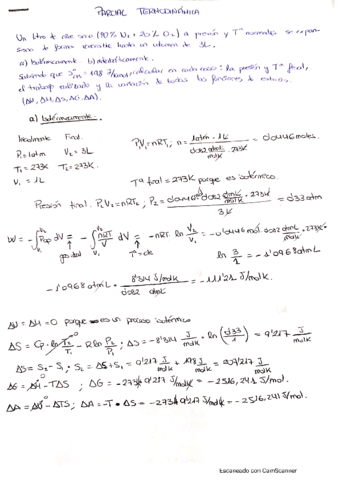 PARCIAL TERMODINÁMICA
Un litro de aire seco (80% N₂ + 20% O₂) a presión y Tª normales se expan-
siona de forma reversible hasta un volumen de 3L.
a) Isotérmicamente b) adiabáticamente.
Sabiendo que S = 198 J/molK calcular en cada caso: la presión y Tª final,
el trabajo realizado y la variación de todas las funciones de estado,
(ΔU, ΔH, ΔS, ΔG, ΔA).
a) Isotérmicamente.
Inicialmente Final.
P₁ = 1 atm V₂ = 3L
T₁ = 273K T₂ = 273K
V₁ = 1L
PV₁ = nRT₁ ; n = 1 atm · 1L / 0'082 atmL/molK · 273K = 0'0446 moles
Tª final = 273K porque es isotérmico.
Presión final: P₂V₂ = nRT₂ ; P₂ = 0'0446 moles · 0'082 atmL/molK · 273K / 3L = 0'33 atm
W = -∫ Pop dV = -∫ nRT/V dV = -nRT · ln V₂/V₁ = -0'0446 mol · 0'082 atmL/molK · 273K ·
gas ideal T = cte ln 3/1 = -1'0968 atmL
-1'0968 atmL · 8'314 J/molK / 0'082 atmL/molK = -111'21 J/mol
ΔU = ΔH = 0 porque es un proceso isotérmico
ΔS = Cp · ln T₂/T₁ - R ln P₂/P₁ ; ΔS = -8'314 J/molK · ln (0'33/1) = 9'217 J/molK
ΔS = S₂ - S₁ ; S₂ = ΔS + S₁ = 9'217 J/molK + 198 J/molK = 207'217 J/molK
ΔG = ΔH - TΔS ; ΔG = -273K · 9'217 J/molK = -2516,241 J/mol
ΔA = ΔU - TΔS ; ΔA = -T · ΔS = -273K · 9'217 J/molK = -2516,241 J/mol
Escaneado con CamScanner